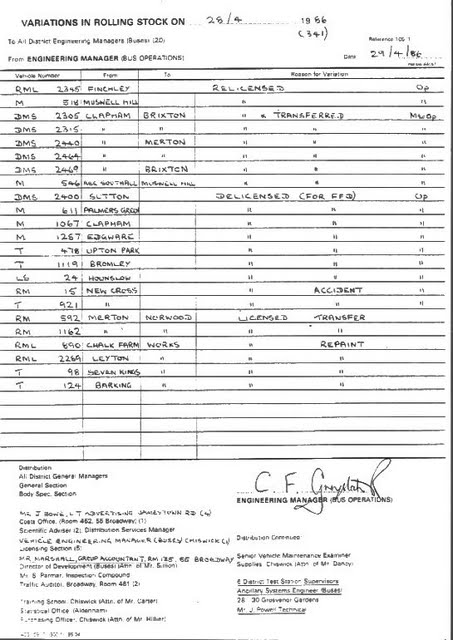 VARIATIONS IN ROLLING STOCK ON 28/4 1986
(341)
To All District Engineering Managers (Buses) (20)
From ENGINEERING MANAGER (BUS OPERATIONS)
Date 29/4/86
Vehicle Number From To Reason for Variation
RML 2345 FINCHLEY RELICENSED Op
M 818 MUSWELL HILL " "
DMS 2305 CLAPHAM BRIXTON " & TRANSFERRED
DMS 2315 " " " " "
DMS 2440 " MERTON " " "
DMS 2464 " " " " "
DMS 2469 " BRIXTON " " "
M 546 SOUTHALL MUSWELL HILL " " "
DMS 2400 SUTTON DELICENSED (FOR FFD) Op
M 611 PALMERS GREEN " " "
M 1067 CLAPHAM " " "
M 1287 EDGWARE " " "
T 478 UPTON PARK " " "
T 1119 BROMLEY " " "
LS 24 HOUNSLOW " " "
RM 15 NEW CROSS " ACCIDENT "
T 921 " " " "
RM 592 MERTON NORWOOD LICENSED TRANSFER "
RM 1162 " " " " "
RML 890 CHALK FARM WORKS " REPAINT "
RML 2289 LEYTON " " " "
T 98 SEVEN KINGS " " " "
T 124 BARKING " " " "
Distribution
All District General Managers
General Section
Body Spec. Section
ENGINEERING MANAGER (BUS OPERATIONS)
MR J BOWE, LT ADVERTISING JAMESTOWN RD (4)
Costs Office, (Room 462, 55 Broadway) (1)
Scientific Adviser (2) Distribution Services Manager
VEHICLE ENGINEERING MANAGER (BUSES) CHISWICK (1)
Licensing Section (5)
MR MARSHALL, GROUP ACCOUNTANT, RM 125, 55 BROADWAY
Director of Development (Buses) (Attn. of Mr.
Mr. S. Parmar, Inspection Compound
Traffic Auditor, Broadway, Room 481 (2)
Training School, Chiswick (Attn. of Mr. Carter)
Statistical Office (Aldenham)
Purchasing, Chiswick (Attn. of Mr. Hillier)
Distribution Continued
Senior Vehicle Maintenance Examiner
Supplies, Chiswick (Attn. of Mr. Dandy)
6 District Test Station Supervisors
Ancillary Systems Engineer (Buses)
28 - 30 Grosvenor Gardens
Mr. J. Powell Technical